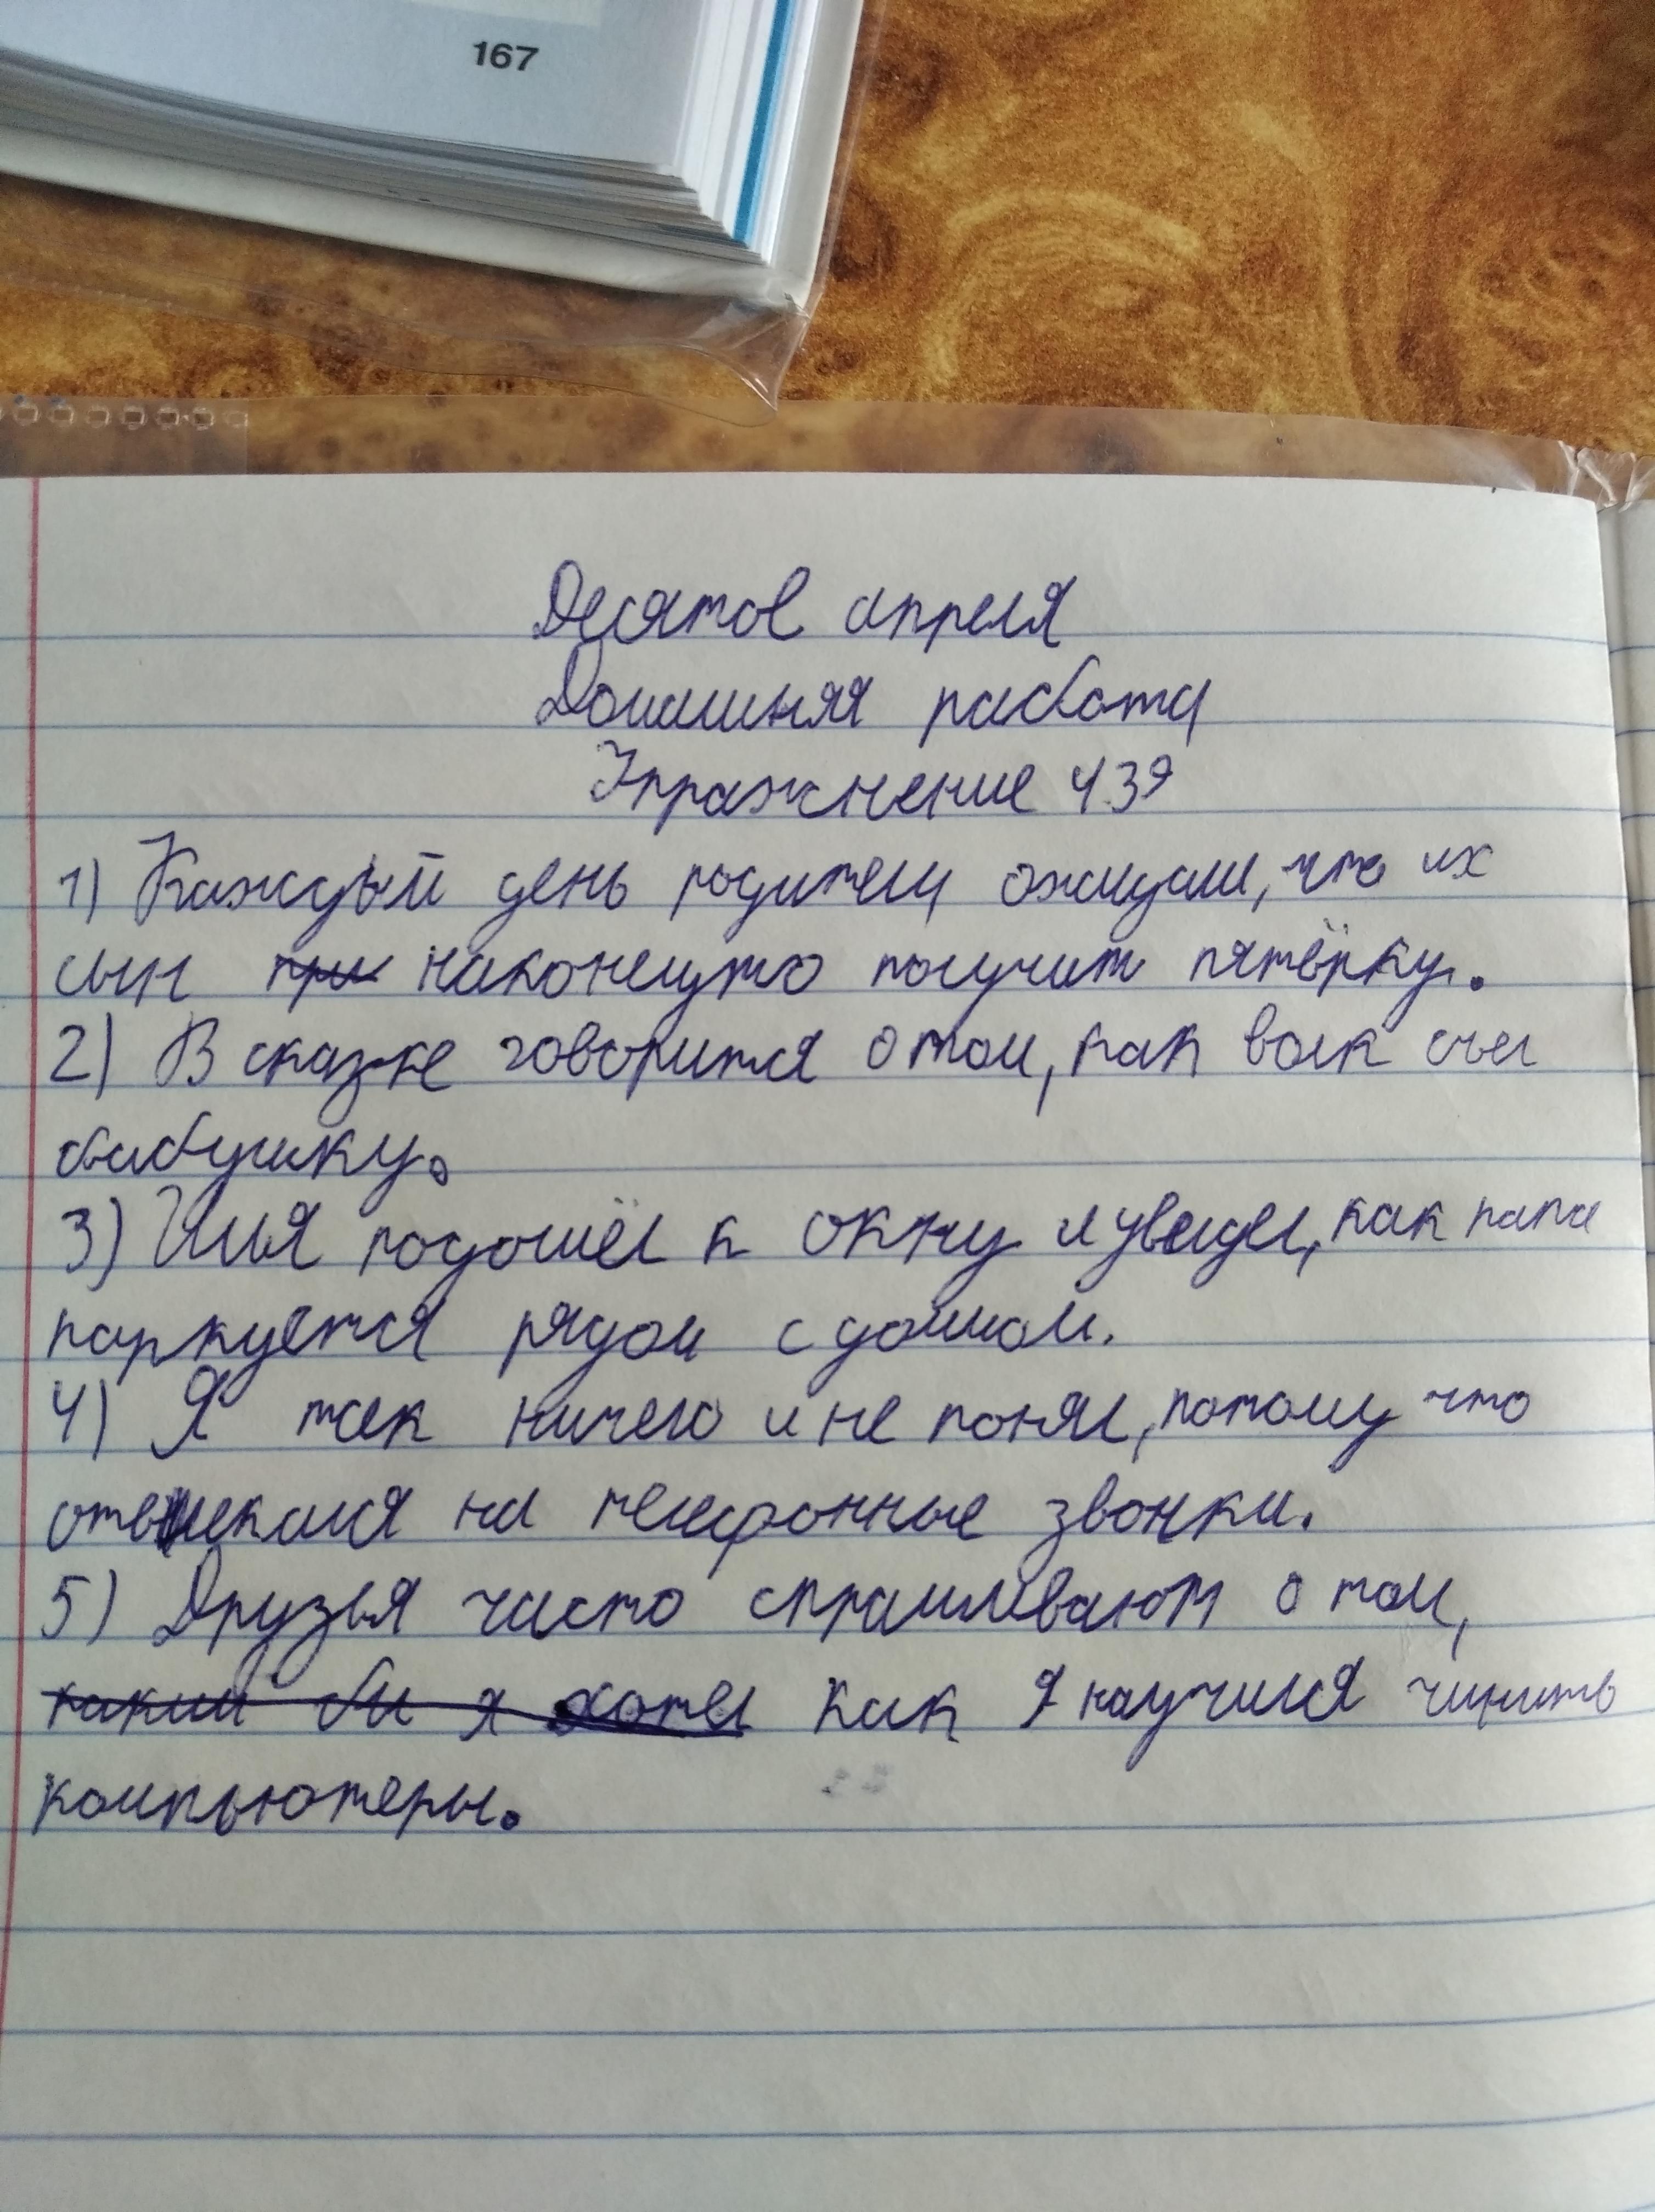 167
Десятое апреля
Домашняя работа
Упражнение 439
1) Каждый день родители ожидали, что их
сын при наконецто получит пятёрку.
2) В сказке говорится о том, как волк съел
бабушку.
3) Илья подошёл к окну и увидел, как папа
паркуется рядом с домом.
4) Я так ничего и не понял, потому что
отвлекался на телефонные звонки.
5) Друзья часто спрашивают о том,
каким бы я хотел как я научился чинить
компьютеры.